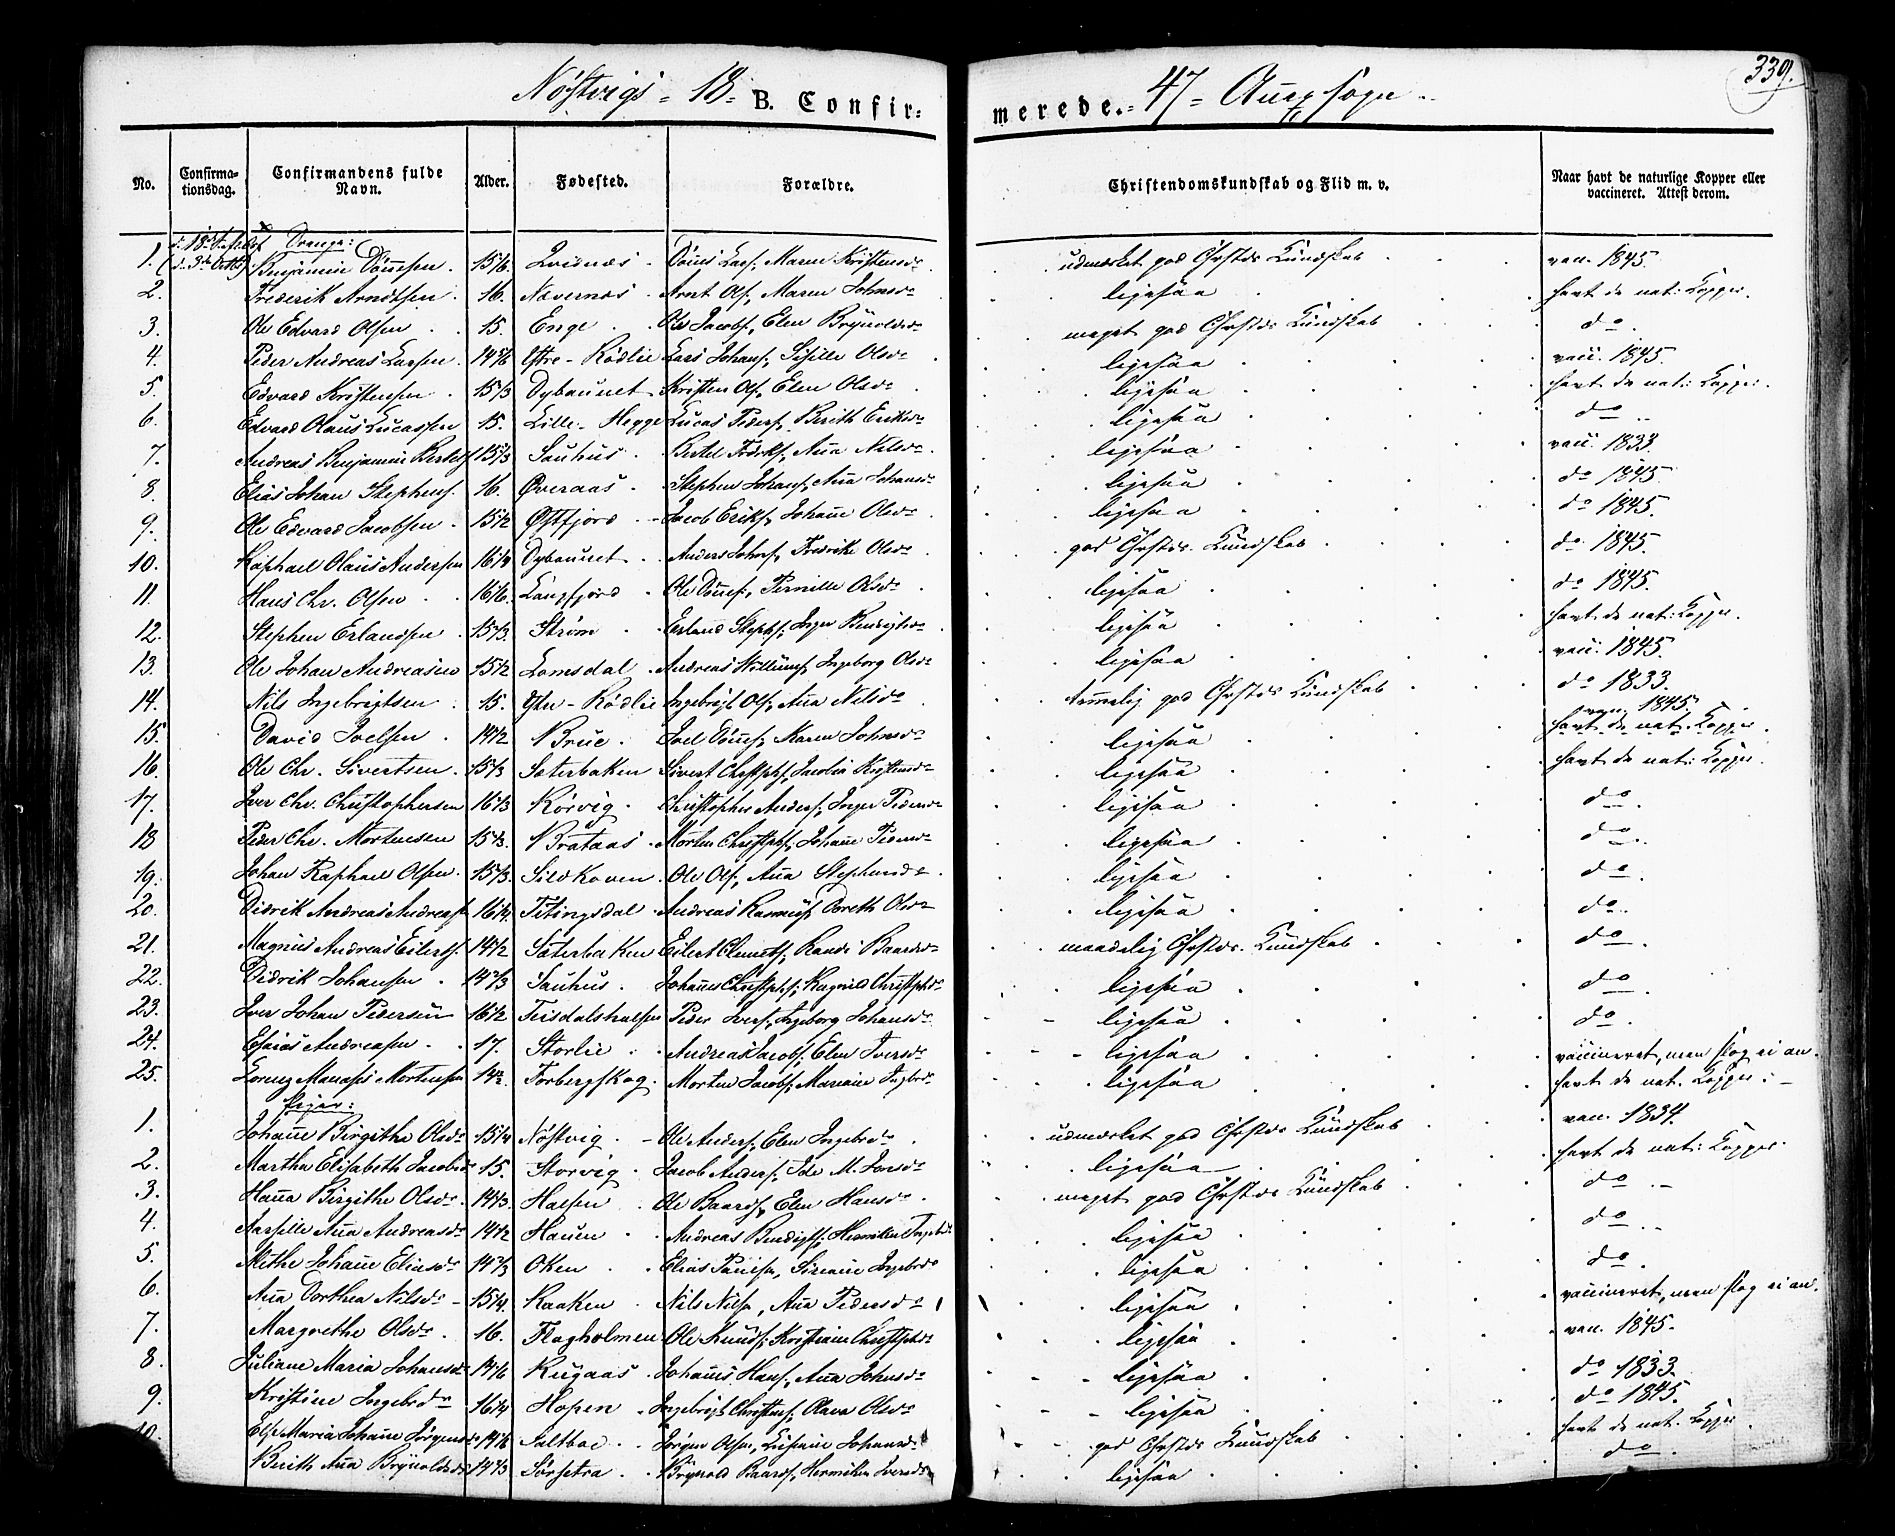 339.
Nöstvigs - 18 - B. Confirmerede. - 47 - Annexsogn
No. Confirmationsdag. Confirmandens fulde Navn. Alder. Fødested. Forældre. Christendomskundskab og Flid m. v. Naar havt de naturlige Kopper eller vaccineret. Attest derom.
Drenge:
1. Benjamin Dönnesen. 15 1/6. Qvidnæs. Dönnes Lars., Maren Kristensdr udmærket god Chrstds Kundskab vacc. 1845.
2. Frederik Arndtsen. 16. Nævernæs. Arnt Ols., Maren Johnsdr ligesaa havt de nat: Kopper.
3. Ole Edvard Olsen 15. Enge. Ole Jacobs., Elen Brynoldsdr meget god Chrstds Kundskab do.
4. Peder Andreas Larsen. Øfre-Rödlie Lars Johans., Sisille Olsdr ligesaa vacc. 1845.
5. Edvard Kristensen 15 1/3 Dybaunet Kristen Ols., Elen Olsdr ligesaa havt de nat: Kopper.
6. Edvard Olaus Lucassen 15. Lille-Hegge Lucas Peders., Berith Eriksdr ligesaa do
7. Andreas Benjamin Bertels. Sauhus. Bertel Fredrks., Anna Nilsdr ligesaa vacc. 1833.
8. Elias Johan Stephens. 16. Øveraas. Stephen Johans., Anna Johansdr ligesaa do 1845.
9. Ole Edvard Jacobsen. 15 1/2 Østfjord. Jacob Eriks., Johanne Olsdr ligesaa do 1845.
10. Raphael Olaus Andersen 16 1/4 Dybaunet. Anders Johns., Fredrikke Olsdr god Chrstds. Kundskab do 1845.
11. Hans Chr. Olsen 16 1/6. Langfjord. Ole Dönnes., Pernille Olsdr ligesaa do 1845.
12. Stephen Erlandsen. 15 2/3. Ström. Erland Stephs., Inger Bendigtsdr ligesaa havt de nat: Kopper.
13. Ole Johan Andreasen 15 1/2 Lomsdal. Andreas Willums., Ingeborg Olsdr ligesaa vacc. 1845.
14. Nils Ingebrigtsen 15. Øfre-Rödlie Ingebrigt Ols., Anna Nilsdr temmelig god Chrstds Kundskab do 1833.
vacc. 1845.
15. David Joelsen. 14 1/2 Brue. Joel Dönnes., Karen Johnsdr ligesaa havt de nat: Kopper.
16. Ole Chr. Sivertsen. 15 1/3 Sæterbakken Sivert Christphs., Jacobia Kristensdr ligesaa havt de nat: Kopper.
17. Iver Chr. Christophersen 16 1/3 Korvig. Christopher Anders., Inger Pedersdr ligesaa do.
18 Peder Chr. Mortensen 15 2/3. Brataas. Morten Christphs., Johanne Pedersdr ligesaa do.
19. Johan Raphael Olsen. 15 1/3. Sildhoven. Ole Ols., Anna Stephensdr ligesaa do.
20. Didrik Andreas Andreass. 16 1/4. Titingsdal. Andreas Rasmus., Dorethe Olsdr ligesaa do.
21. Magnus Andreas Eilerts. 14 1/2 Sæterbakken Eilert Clemets., Randi Baardsdr maadelig Chrstds. Kundskab do.
22. Didrik Johansen. 14 2/3 Sauhus. Johannes Christphs., Ragnild Christphdr ligesaa do
23. Iver Johan Pedersen 16 1/2 Teisdalshalsen Peder Ivers., Ingeborg Johansdr ligesaa do.
24. Esaias Andreasen. 17. Storlie. Andreas Jacobs., Elen Iversdr ligesaa vaccineret, men slog ei an.
25. Lorenz Manases Mortensen 14 1/2. Forbergskog. Morten Jacobs., Mariane Ingbrdr ligesaa havt de nat. Kopper.
Piger:
1. Johanne Birgithe Olsdr 15 1/4 Nöstvig. Ole Anders., Elen Ingebrdr udmærket god Chrstds Kundskab vacc. 1834.
2. Martha Elisabeth Jacobsdr 15. Storvig. Jacob Anders., Ide M. Joensdr ligesaa havt de nat: Kopper.
3. Hanna Birgithe Olsdr. 14 2/3. Halsen. Ole Baards., Elen Hansdr meget god Chrstds Kundskab do
4. Aarsille Anna Andreasdr 14 1/2 Hauen. Andreas Bendigts., Henrikke Ingebrdr ligesaa do
5. Methe Johanne Eliasdr 14 2/3 Oken. Elias Paulsen, Sirianne Ingebrdr ligesaa do.
6. Anna Dorthea Nilsdr 15 1/4. Kaaken. Nils Nilsn, Anna Pedersdr ligesaa vaccineret, men slog ei an.
7. Margrethe Olsdr. 16. Flagholmen. Ole Knuds., Kristiane Christphdr ligesaa vacc. 1845.
8. Juliane Maria Johansdr Rugaas. Johannes Hans., Anna Johnsdr ligesaa do 1833.
9. Kristine Ingebrdr 16 1/4 Hopen. Ingebrigt Christens., Olava Olsdr ligesaa do 1845.
10. Else Maria Johanne Jörgensdr Saltbac. Jörgen Olsen, Lusianne Johansdr god Chrstds Kundskab havt de nat. Kopper
Berith Anna Brynoldsdr 14 2/3 Sörsetra. Brynold Baards., Hermikke Iversdr ligesaa do.